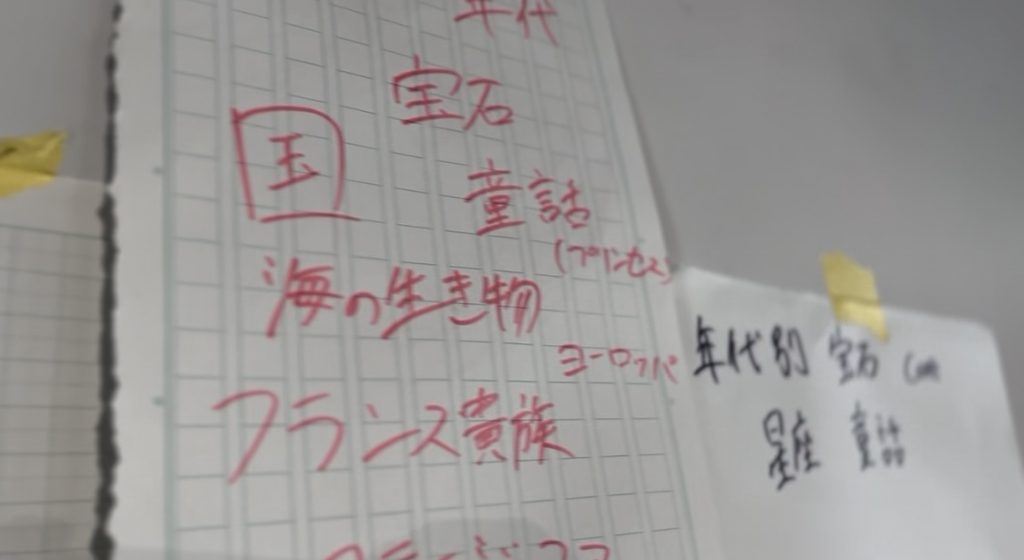 年代
宝石
国
童話
(プリンセス)
海の生き物
ヨーロッパ
フランス貴族
年代別 宝石
星座 童話